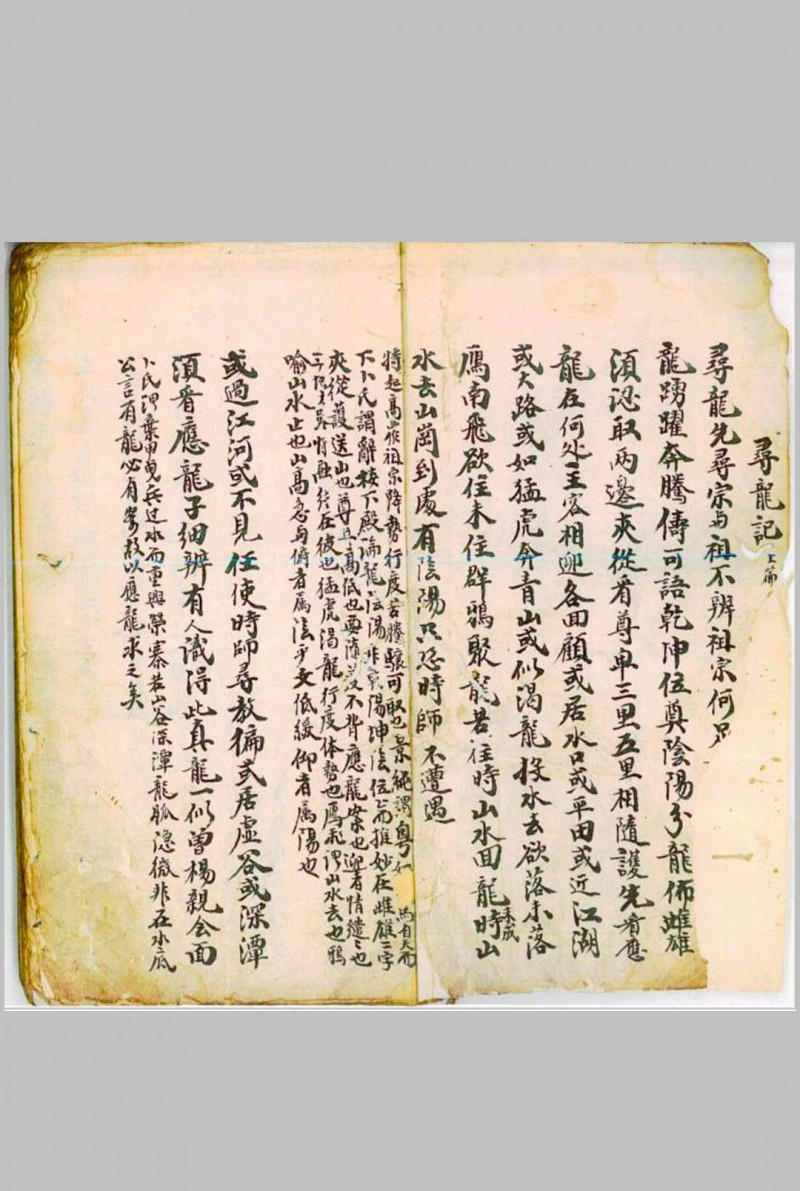 尋龍記上篇
尋龍先尋宗与祖不辨祖宗何足
龍踴躍奔騰儔可語乾坤位奠陰陽分龍佈雌雄
須認取兩邊夾從看尊卑三里五里相隨護先看應
龍在何处主客相迎各回顧或居水口或平田或近江湖
或大路或如猛虎奔青山或似渴龍投水去欲落未落
鴈南飛欲住未住群鴉聚龍若住時山水回龍未成時山
水去山崗到處有陰陽只恐時師不遭遇
特起高崔祖宗降勢行度若騰驤可取也景純謂粤如為自天而
下卜氏謂辭樓下殿論龍陰陽非乾陽坤陰位而推妙在雌雄二字
夾從護送山也尊卑高低也要不背應龍案也迎者情繾〻也
在彼也猛虎渴龍行度体勢也鴈飛謂山水去也鴉
喻山水止也山高急与俯者属陰平文低緩仰者属陽也
或過江河或不見任使時師尋教徧或居虛谷或深潭
須看應龍子細辨有人識得此真龍一似曾楊親会面
卜氏謂棄甲曳兵过水而重興榮寨若山谷深潭龍脈隐微非在水底
公言有龍必有案故以應龍求之矣